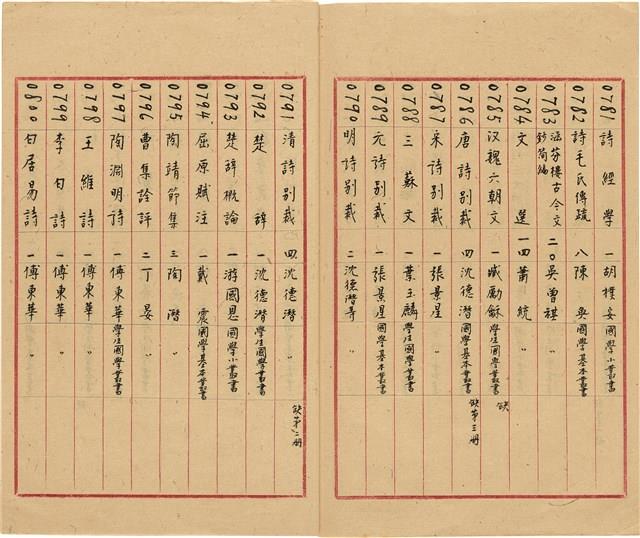 0781 詩經學 一 胡樸安 國學小叢書
0782 詩毛氏傳疏 八 陳奐 國學基本叢書
0783 涵芬樓古今文鈔簡編 二〇 吳曾祺 〃
0784 文選 一四 蕭統 〃
0785 汉魏六朝文 一 臧勵龢 學生國學叢書 缺
0786 唐詩別裁 四 沈德潛 國學基本叢書 缺第三册
0787 宋詩別裁 一 張景星 〃
0788 三蘇文 一 葉玉麟 學生國學叢書
0789 元詩別裁 一 張景星 國學基本叢書
0790 明詩別裁 二 沈德潛等 〃
0791 清詩別裁 四 沈德潛 〃 缺第二册
0792 楚辞 一 沈德潛 學生國學叢書
0793 楚辞概論 一 游國恩 國學小叢書
0794 屈原賦注 一 戴震 國學基本叢書
0795 陶靖節集 三 陶潛 〃
0796 曹集詮評 二 丁晏 〃
0797 陶淵明詩 一 傅東華 學生國學叢書
0798 王維詩 一 傅東華 〃
0799 李白詩 一 傅東華 〃
0800 白居易詩 一 傅東華 〃